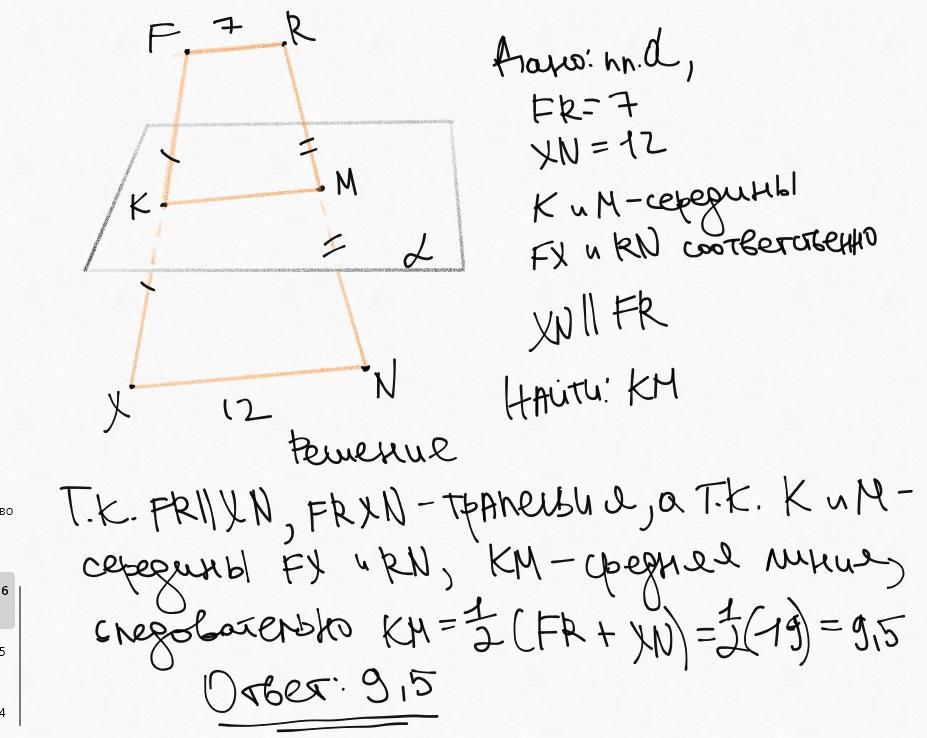 F 7 R
Дано: пл. α,
FR = 7
XN = 12
K M
K и M - середины
FX и RN соответственно
α
XN || FR
X 12 N
Найти: KM
Решение
Т.к. FR||XN, FRXN - трапеция, а т.к. K и M -
середины FX и RN, KM - средняя линия,
следовательно KM = 1/2 (FR + XN) = 1/2 (19) = 9,5
Ответ: 9,5
во
6
5
4